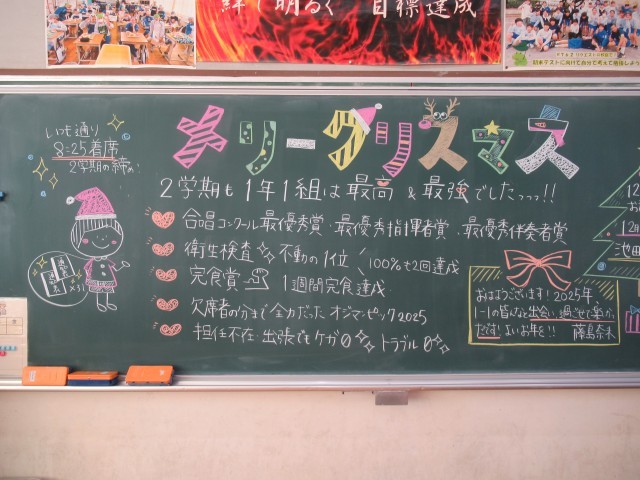 絆で明るく 目標達成
いも通り
8:25着席
2学期の締め!
メリークリスマス
2学期も1年1組は最高&最強でしたっっっ!!
合唱コンクール最優秀賞・最優秀指揮者賞・最優秀伴奏者賞
衛生検査 不動の1位 100%も2回達成
完食賞 1週間完食達成
欠席者の分まで全力だったオジマンピック2025
担任不在・出張でもケガ0 トラブル0
通知表
×31
おはようございます!2025年、
1-1の皆さんと出会い、過ごせて幸か
たです!よいお年を!!
藤島奈未
12
お
12月
池田